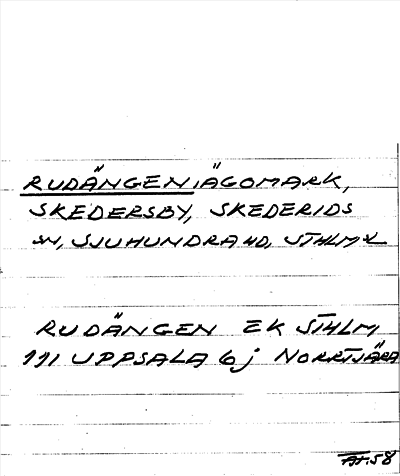 RUDÄNGEN, ÄGOMARK,
SKEDERSBY, SKEDERIDS
SN, SJUHUNDRA HD, STHLMS L
RUDÄNGEN EK STHLM
111 UPPSALA 6j NORRTJÄRA